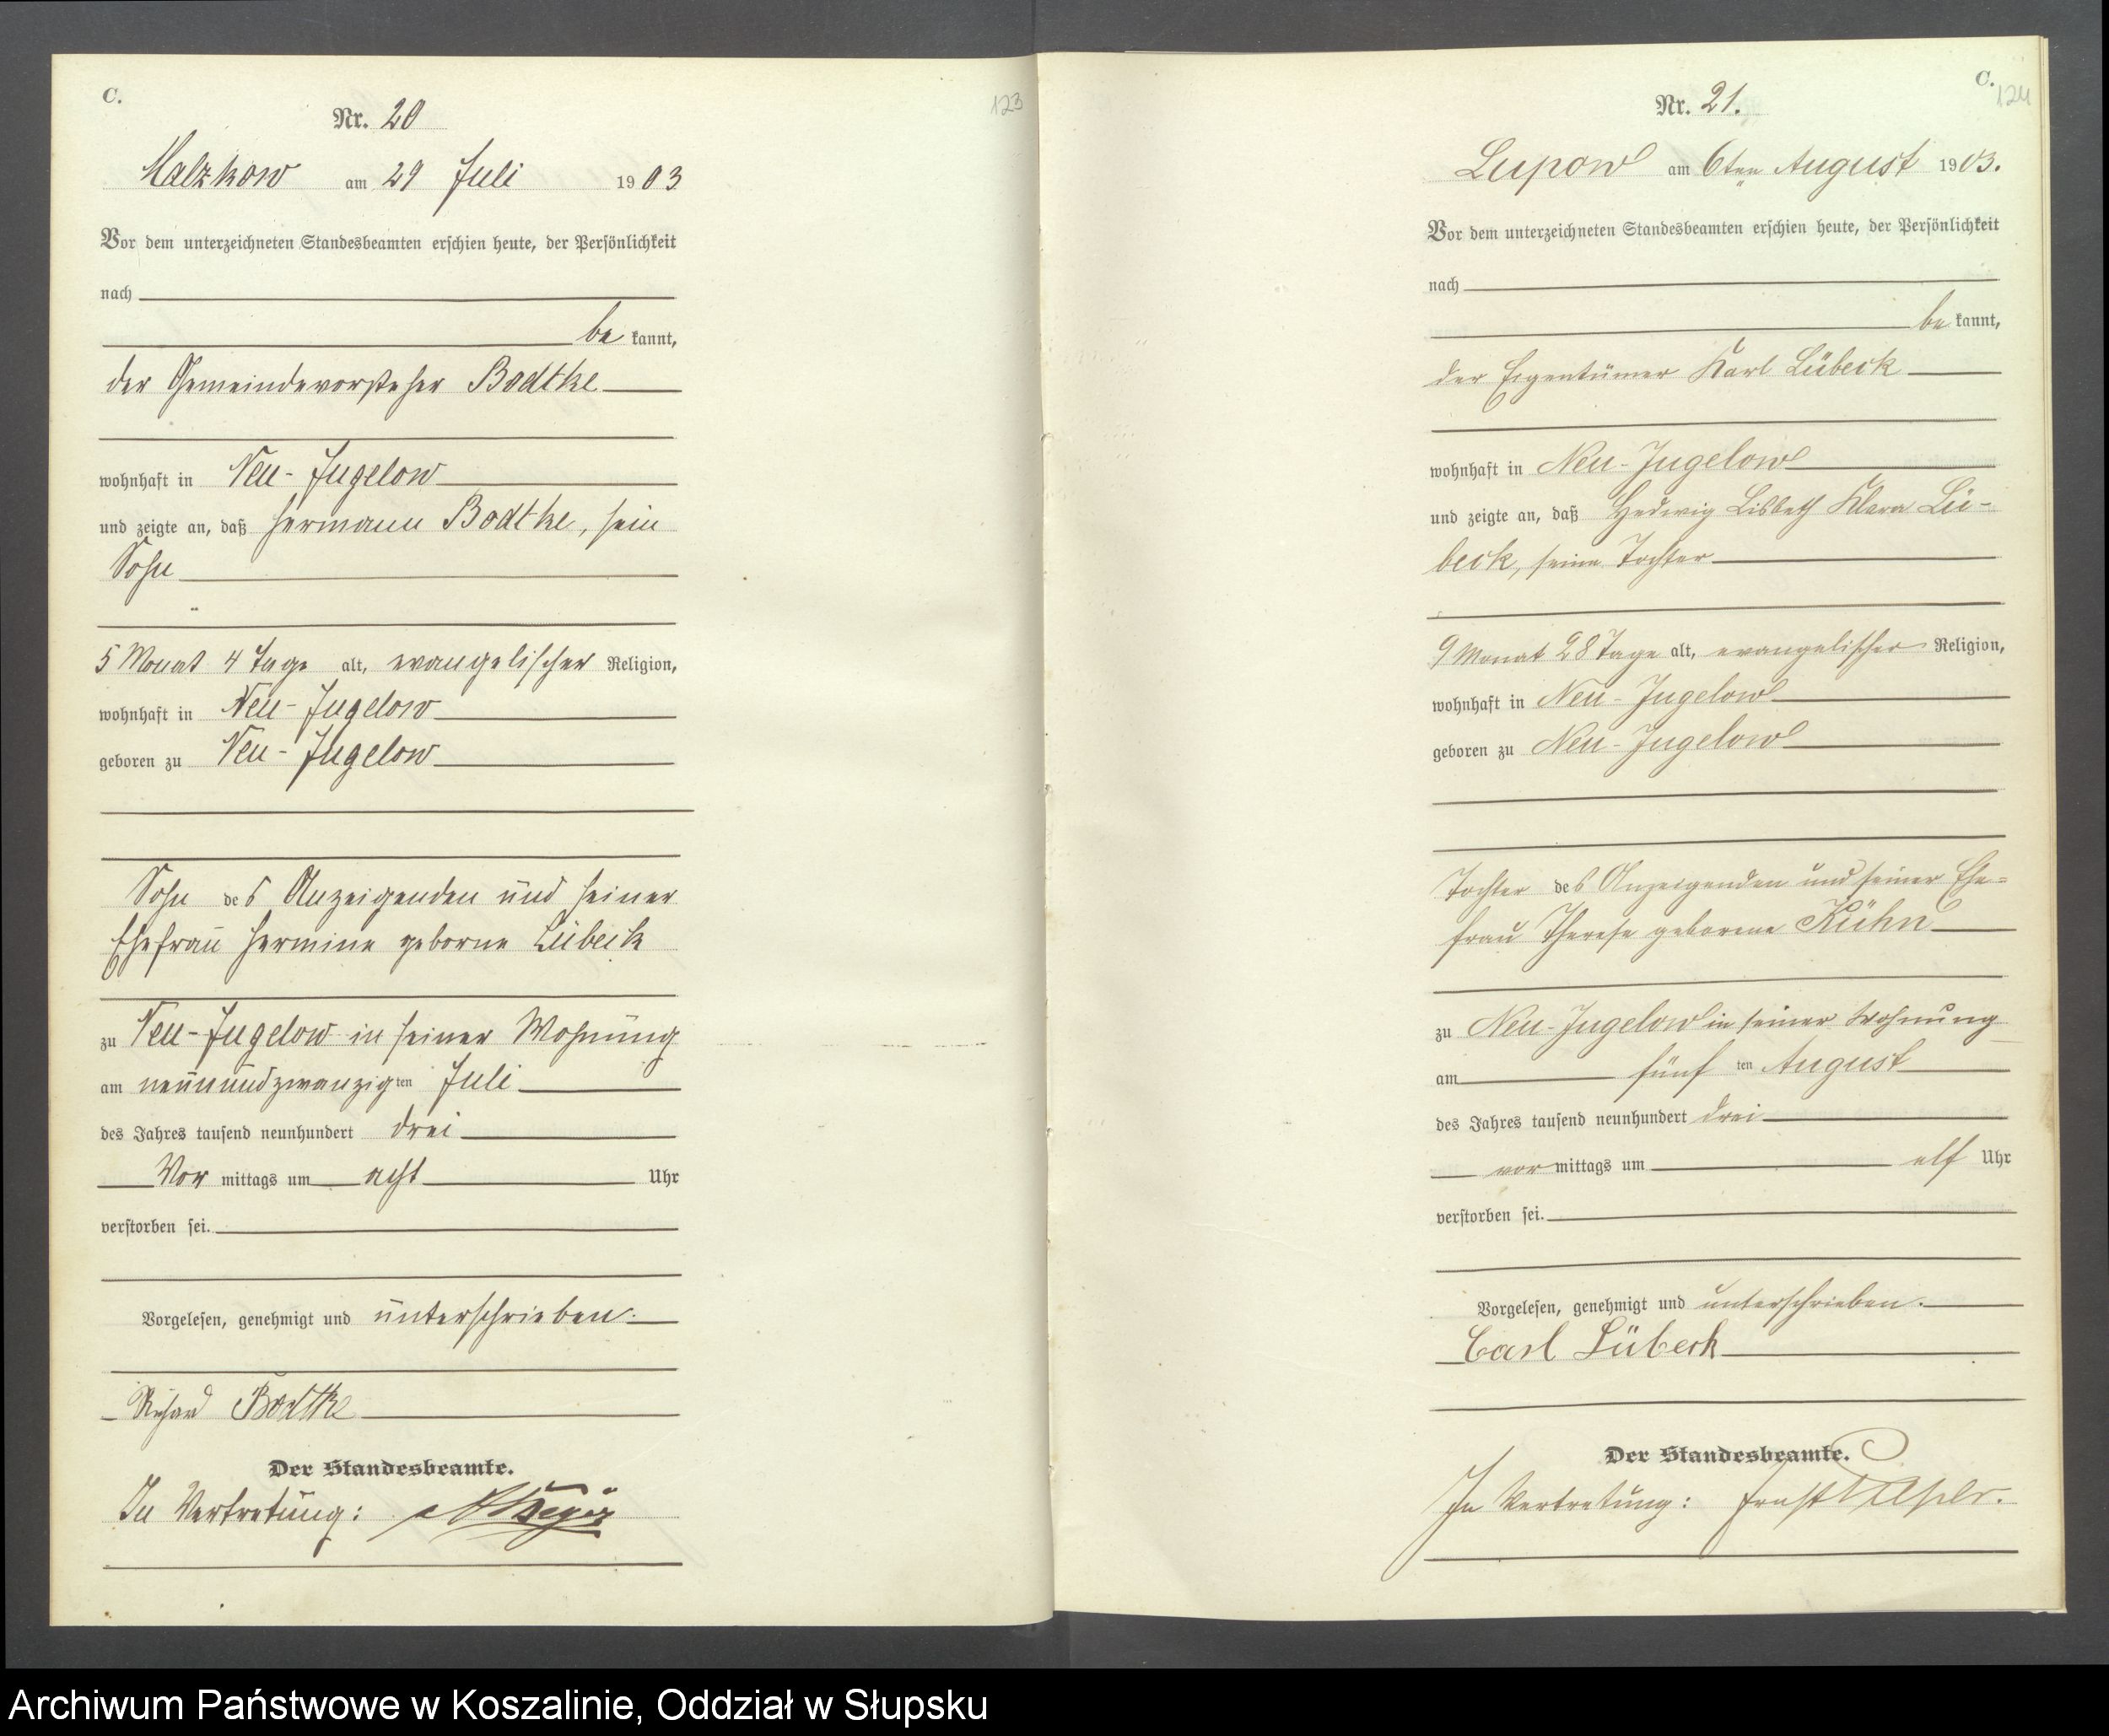 C.
Nr. 20
123
Malzkow am 29 Juli 1903
Vor dem unterzeichneten Standesbeamten erschien heute, der Persönlichkeit
nach
be kannt,
der Gemeindevorsteher Bodtke
wohnhaft in Neu-Jugelow
und zeigte an, daß Hermann Bodtke, sein
Sohn
5 Monat 4 Tage alt, evangelischer Religion,
wohnhaft in Neu-Jugelow
geboren zu Neu-Jugelow
Sohn des Anzeigenden und seiner
Ehefrau Hermine geborne Lübeck
zu Neu-Jugelow in seiner Wohnung
am neunundzwanzigten Juli
des Jahres tausend neunhundert drei
Vor mittags um acht Uhr
verstorben sei.
Vorgelesen, genehmigt und unterschrieben.
Richard Bodtke
Der Standesbeamte.
In Vertretung:
C.
124
Nr. 21.
Lupow am 6ten August 1903.
Vor dem unterzeichneten Standesbeamten erschien heute, der Persönlichkeit
nach
be kannt,
der Eigentümer Karl Lübeck
wohnhaft in Neu-Jugelow
und zeigte an, daß Hedwig Lisbeth Klara Lü-
beck, seine Tochter
9 Monat 28 Tage alt, evangelischer Religion,
wohnhaft in Neu-Jugelow
geboren zu Neu-Jugelow
Tochter des Anzeigenden und seiner Ehe-
frau Therese geborene Kühn
zu Neu-Jugelow in seiner Wohnung
am fünf ten August
des Jahres tausend neunhundert drei
vor mittags um elf Uhr
verstorben sei.
Vorgelesen, genehmigt und unterschrieben.
Carl Lübeck
Der Standesbeamte.
In Vertretung: Ernst
Archiwum Państwowe w Koszalinie, Oddział w Słupsku